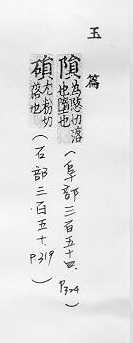 玉篇
隕 為愍切落也墮也（阜部三百五十四. P324）
磒 尤粉切落也（石部三百五十. P319）